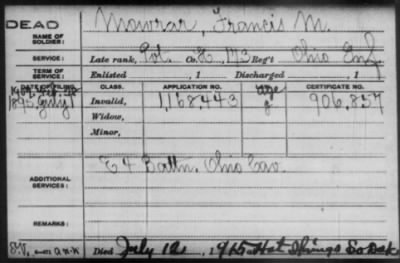 DEAD
NAME OF SOLDIER: Mowrar, Francis M.
SERVICE: Late rank, Pvt. Co. K, 173 Reg't Ohio Inf.
TERM OF SERVICE: Enlisted , 1 Discharged , 1
DATE OF FILING. CLASS. APPLICATION NO. CERTIFICATE NO.
1895, July 1 Invalid, 1,168,443 906,857
Widow,
Minor,
ADDITIONAL SERVICES: E 4 Battn. Ohio Cav.
REMARKS:
Died July 12, 1915 Hot Springs So Dak